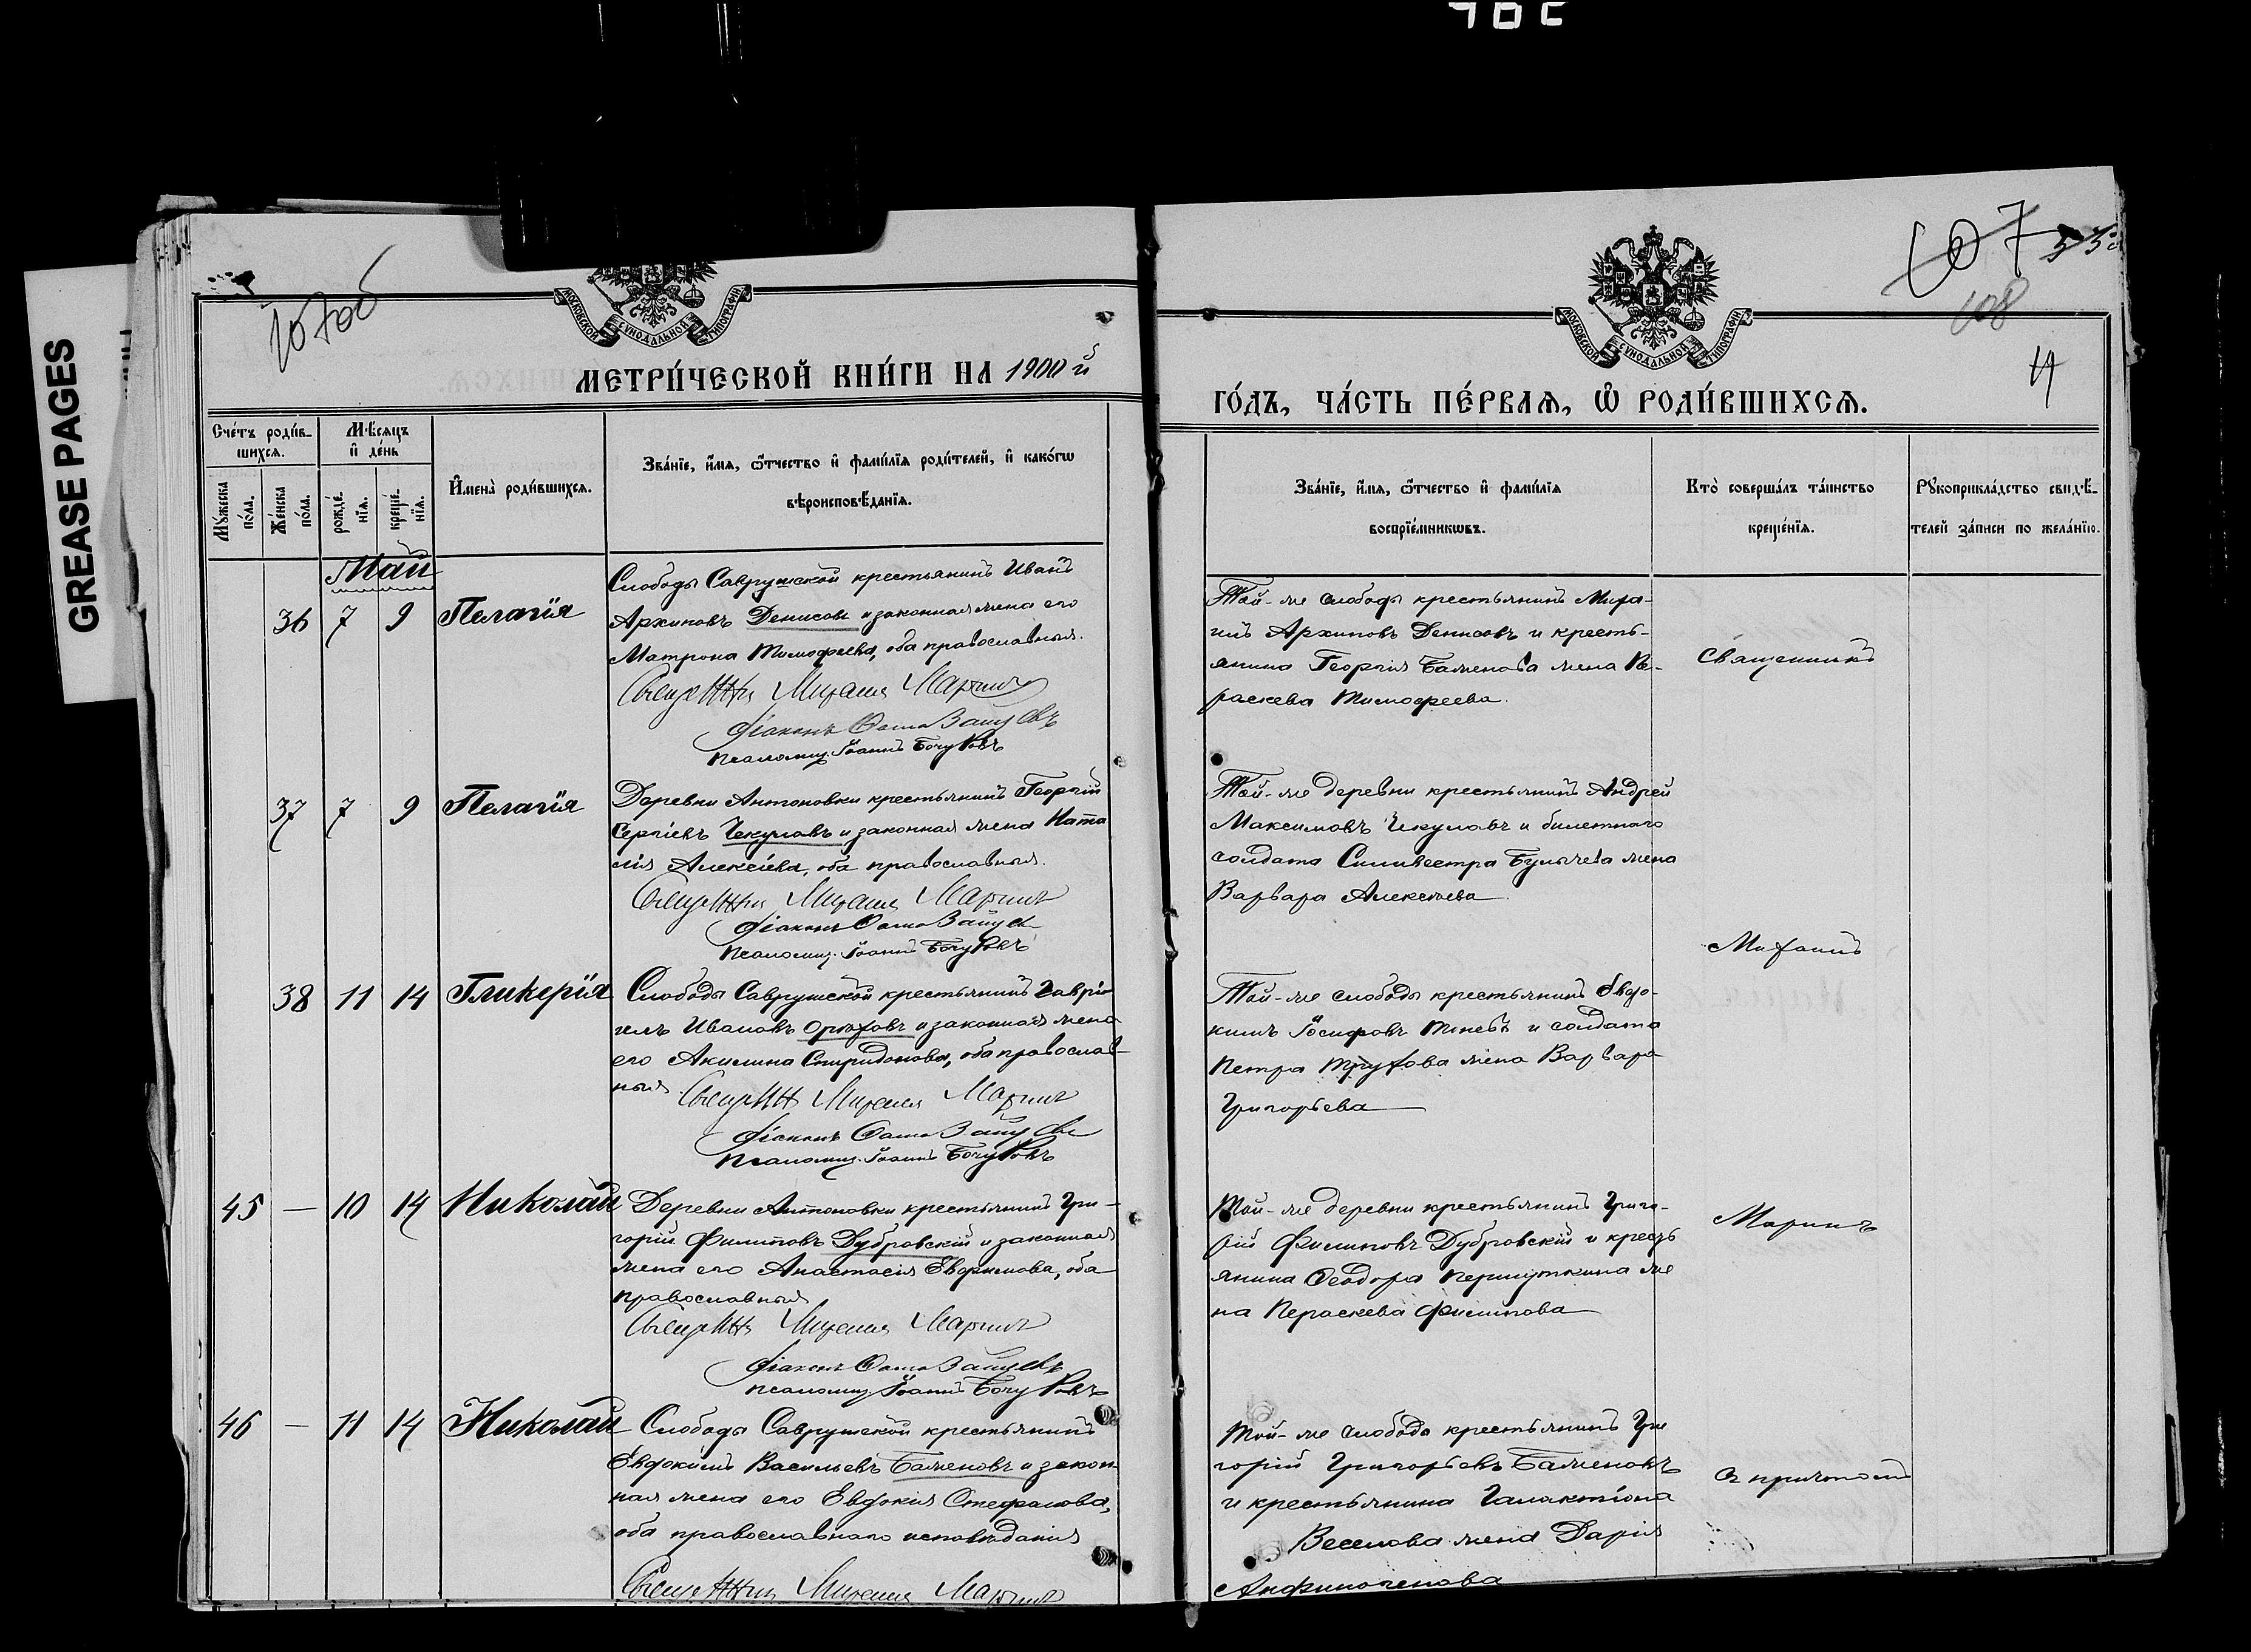 GREASE PAGES
107об
107
108
МОСКОВСКОЙ СѴНОДАЛЬНОЙ ТИПОГРАФІИ
МОСКОВСКОЙ СѴНОДАЛЬНОЙ ТИПОГРАФІИ
МЕТРИ́ЧЕСКОЙ КНИ́ГИ НА 1900 й
ГО́ДЪ, ЧА́СТЬ ПЕ́РВАѦ, Ѽ РОДИ́ВШИХСѦ.
Сче́тъ роди́в-
шихсѧ.
Мѣ́сѧцъ
и҆ де́нь
Мꙋ́жеска
по́ла.
Же́нска
по́ла.
рожде́-
нїѧ.
креще́-
нїѧ.
И҆мена̀ роди́вшихсѧ.
Зва́нїе, и҆́мѧ, ѻ҆́тчество и҆ фамі́лїѧ роди́телей, и҆ како́гѡ
вѣроисповѣ́данїѧ.
Зва́нїе, и҆́мѧ, ѻ҆́тчество и҆ фамі́лїѧ
воспрїе́мникѡвъ.
Кто̀ соверша́лъ та́инство
креще́нїѧ.
Рꙋкоприкла́дство свидѣ́-
телей за́писи по жела́нїю.
Май
36 7 9 Пелагія
Слободы Саврушской крестьянинъ Иванъ
Архиповъ Денисовъ и законная жена его
Матрона Тимофеева, оба православныя.
Священникъ Михаилъ Маринъ
Діаконъ Ѳома Зайцевъ
Псаломщ. Іоаннъ Бочуровъ
Той-же слободы крестьянинъ Миро-
нъ Архиповъ Денисовъ и кресть-
янина Георгія Баженова жена Па-
раскева Тимофеева.
Священникъ
37 7 9 Пелагія
Деревни Антоновки крестьянинъ Георгій
Сергіевъ Чекулаевъ и законная жена Ната
лія Алексіева, оба православныя.
Священникъ Михаилъ Маринъ
Діаконъ Ѳома Зайцевъ
Псаломщ. Іоаннъ Бочуровъ
Той-же деревни крестьянинъ Андрей
Максимовъ и билетнаго
солдата Силивестра Булычева жена
Варвара Алексіева
Михаилъ
38 11 14 Гликерія
Слободы Саврушской крестьянинъ Гаврі-
илъ Ивановъ Орѣховъ и законная жена
его Акилина Спиридонова, оба православ-
ныя.
Священникъ Михаилъ Маринъ
Діаконъ Ѳома Зайцевъ
Псаломщ. Іоаннъ Бочуровъ
Той-же слободы крестьянинъ Евдо-
кимъ Іосифовъ и солдата
Петра Трухова жена Варвара
Григорьева
45 — 10 14 Николай
Деревни Антоновки крестьянинъ Гри-
горій Филиповъ Дубровскій и законная
жена его Анастасія Евфимова, оба
православныя
Священникъ Михаилъ Маринъ
Діаконъ Ѳома Зайцевъ
Псаломщ. Іоаннъ Бочуровъ
Той-же деревни крестьянинъ Григо-
рій Филиповъ Дубровскій и кресть
янина Ѳеодора же
на Параскева Филипова
Маринъ
46 — 11 14 Николай
Слободы Саврушской крестьянинъ
Евдокимъ Васильевъ Баженовъ и закон-
ная жена его Евдокія Стефанова,
оба православнаго исповѣданія
Священникъ Михаилъ Маринъ
Той-же слободы крестьянинъ Гри
горій Григорьевъ Баженовъ
и крестьянина Галактіона
Веселова жена Дарія
съ причтомъ